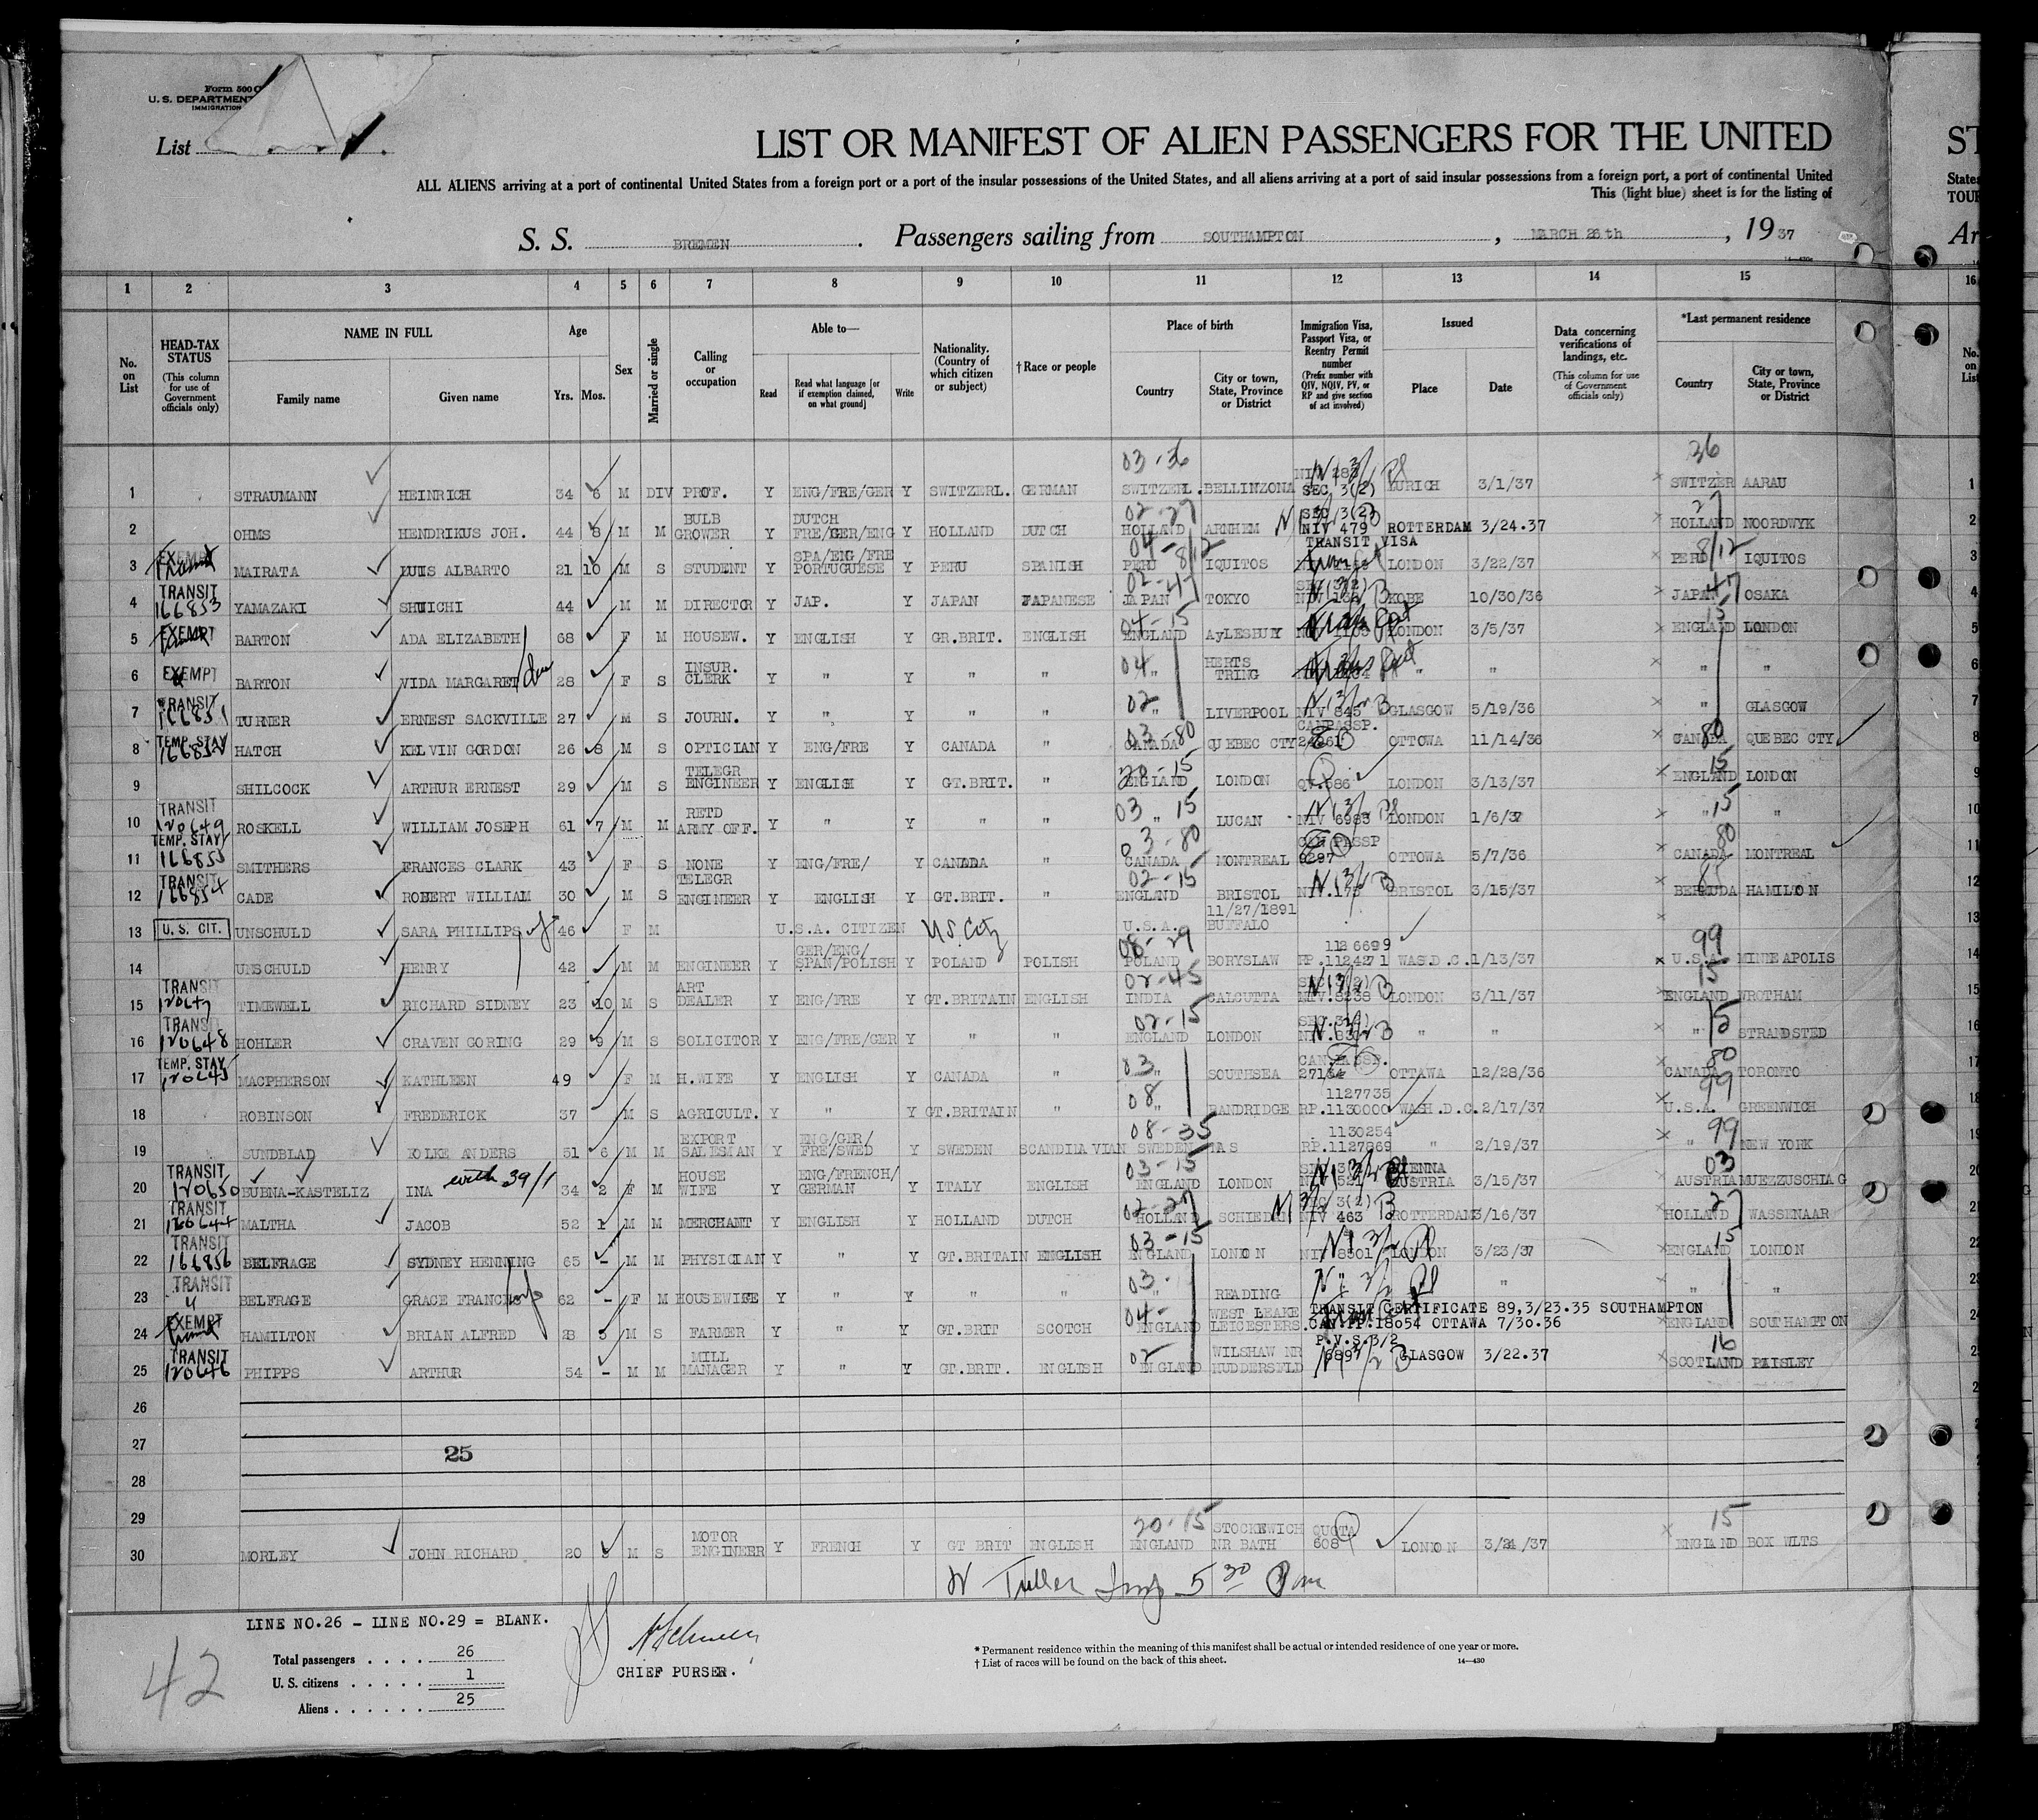 Form 500
U. S. DEPARTMENT
IMMIGRATION
List 1.
LIST OR MANIFEST OF ALIEN PASSENGERS FOR THE UNITED
ALL ALIENS arriving at a port of continental United States from a foreign port or a port of the insular possessions of the United States, and all aliens arriving at a port of said insular possessions from a foreign port, a port of continental United
This (light blue) sheet is for the listing of
S. S. BREMEN . Passengers sailing from SOUTHAMPTON , MARCH 26th , 19 37
1 2 3 4 5 6 7 8 9 10 11 12 13 14 15 16
No. on List
HEAD-TAX STATUS (This column for use of Government officials only)
NAME IN FULL Family name Given name
Age Yrs. Mos.
Sex
Married or single
Calling or occupation
Able to— Read Read what language [or if exemption claimed, on what ground] Write
Nationality. (Country of which citizen or subject)
†Race or people
Place of birth Country City or town, State, Province or District
Immigration Visa, Passport Visa, or Reentry Permit number (Prefix number with QIV, NQIV, PV, or RP and give section of act involved)
Issued Place Date
Data concerning verifications of landings, etc. (This column for use of Government officials only)
*Last permanent residence Country City or town, State, Province or District
1 STRAUMANN HEINRICH 34 6 M DIV PROF. Y ENG/FRE/GER Y SWITZERL. GERMAN 03-36 SWITZERL. BELLINZONA SEC 3(2) ZURICH 3/1/37 36 SWITZER AARAU
2 OHMS HENDRIKUS JOH. 44 8 M M BULB GROWER Y DUTCH FRE/GER/ENG Y HOLLAND DUTCH 02-27 HOLLAND ARNHEM SEC 3(2) NIV 479 ROTTERDAM 3/24.37 27 HOLLAND NOORDWYK
3 EXEMPT MAIRATA LUIS ALBARTO 21 10 M S STUDENT Y SPA/ENG/FRE PORTUGUESE Y PERU SPANISH 04-8/12 PERU IQUITOS TRANSIT VISA LONDON 3/22/37 8/12 PERU IQUITOS
4 TRANSIT 166853 YAMAZAKI SHUICHI 44 M M DIRECTOR Y JAP. Y JAPAN JAPANESE 02-47 JAPAN TOKYO KOBE 10/30/36 47 JAPAN OSAKA
5 EXEMPT BARTON ADA ELIZABETH 68 F M HOUSEW. Y ENGLISH Y GR.BRIT. ENGLISH 04-15 ENGLAND LONDON 3/5/37 15 ENGLAND LONDON
6 EXEMPT BARTON VIDA MARGARET 28 F S INSUR. CLERK Y " Y " " 04 " HERTS TRING " " " "
7 TRANSIT 166851 TURNER ERNEST SACKVILLE 27 M S JOURN. Y " Y " " 02 " LIVERPOOL NIV 845 GLASGOW 5/19/36 " GLASGOW
8 TEMP. STAY 166852 HATCH KELVIN GORDON 26 8 M S OPTICIAN Y ENG/FRE Y CANADA " 03-80 CANADA QUEBEC CTY CANPASSP. OTTOWA 11/14/36 80 CANADA QUEBEC CTY
9 SHILCOCK ARTHUR ERNEST 29 M S TELEGR ENGINEER Y ENGLISH Y GT.BRIT. " 20-15 ENGLAND LONDON LONDON 3/13/37 15 ENGLAND LONDON
10 TRANSIT 120649 ROSKELL WILLIAM JOSEPH 61 7 M M RETD ARMY OFF. Y " Y " " 03 " 15 LUCAN NIV 6983 LONDON 1/6/37 " 15 "
11 TEMP. STAY 166855 SMITHERS FRANCES CLARK 43 F S NONE Y ENG/FRE/ Y CANADA " 03-80 CANADA MONTREAL CAN PASSP OTTOWA 5/7/36 80 CANADA MONTREAL
12 TRANSIT 166854 CADE ROBERT WILLIAM 30 M S TELEGR ENGINEER Y ENGLISH Y GT.BRIT. " 02-15 ENGLAND BRISTOL BRISTOL 3/15/37 BERMUDA HAMILTON
13 U. S. CIT. UNSCHULD SARA PHILLIPS 46 F M U.S.A. CITIZEN U.S. City U.S.A. 11/27/1891 BUFFALO
14 UNSCHULD HENRY 42 M M ENGINEER Y GER/ENG/ SPAN/POLISH Y POLAND POLISH 08-29 POLAND BORYSLAW 1126699 RP.1124271 WAS.D.C. 1/13/37 99 U.S.A. MINNEAPOLIS
15 TRANSIT 120647 TIMEWELL RICHARD SIDNEY 23 10 M S ART DEALER Y ENG/FRE Y GT.BRITAIN ENGLISH 02-45 INDIA CALCUTTA NIV.8238 LONDON 3/11/37 15 ENGLAND WROTHAM
16 TRANSIT 120648 HOHLER CRAVEN GORING 29 9 M S SOLICITOR Y ENG/FRE/GER Y " " 02-15 ENGLAND LONDON " " " 15 STRANDSTED
17 TEMP. STAY 120645 MACPHERSON KATHLEEN 49 F M H.WIFE Y ENGLISH Y CANADA " 03 " SOUTHSEA OTTAWA 12/28/36 80 CANADA TORONTO
18 ROBINSON FREDERICK 37 M S AGRICULT. Y " Y GT.BRITAIN " 08 " BANDRIDGE 1127735 RP.1130000 WASH.D.C. 2/17/37 99 U.S.A. GREENWICH
19 SUNDBLAD FOLKE ANDERS 51 6 M M EXPORT SALESMAN Y ENG/GER/ FRE/SWED Y SWEDEN SCANDINAVIAN 08-35 SWEDEN 1130254 RP.1127669 " 2/19/37 99 " NEW YORK
20 TRANSIT 120650 BUBNA-KASTELIZ INA with 39/1 34 2 F M HOUSE WIFE Y ENG/FRENCH/ GERMAN Y ITALY ENGLISH 03-15 ENGLAND LONDON VIENNA AUSTRIA 3/15/37 03 AUSTRIA MUEZZUSCHLAG
21 TRANSIT 120644 MALTHA JACOB 52 1 M M MERCHANT Y ENGLISH Y HOLLAND DUTCH 02-27 HOLLAND SCHIEDAM SEC 3(2) NIV 463 ROTTERDAM 3/16/37 27 HOLLAND WASSENAAR
22 TRANSIT 166856 BELFRAGE SYDNEY HENNING 65 - M M PHYSICIAN Y " Y GT.BRITAIN ENGLISH 03-15 ENGLAND LONDON NIV 8501 LONDON 3/23/37 15 ENGLAND LONDON
23 TRANSIT " BELFRAGE GRACE FRANCES wife 62 - F M HOUSEWIFE Y " Y " " 03- " READING " " " "
24 EXEMPT HAMILTON BRIAN ALFRED 28 3 M S FARMER Y " Y GT.BRIT SCOTCH 04- ENGLAND WEST LEAKE LEICESTERS. TRANSIT CERTIFICATE 89,3/23.35 SOUTHAMPTON CAN.PP.18054 OTTAWA 7/30.36 ENGLAND SOUTHAMPTON
25 TRANSIT 120646 PHIPPS ARTHUR 54 - M M MILL MANAGER Y " Y GT.BRIT. ENGLISH 02 ENGLAND WILSHAW NR HUDDERSFLD P.V.S.3/2 GLASGOW 3/22.37 16 SCOTLAND PAISLEY
26
27 25
28
29
30 MORLEY JOHN RICHARD 20 M S MOTOR ENGINEER Y FRENCH Y GT BRIT ENGLISH 20-15 ENGLAND STOCKEWICH NR BATH QUOTA 608 LONDON 3/24/37 15 ENGLAND BOX WLTS
W Tuller Insp 5 30 Pm
LINE NO.26 - LINE NO.29 = BLANK.
Total passengers . . . . 26
U. S. citizens . . . . . 1
Aliens . . . . . . 25
42
CHIEF PURSER.
* Permanent residence within the meaning of this manifest shall be actual or intended residence of one year or more.
† List of races will be found on the back of this sheet.
14—430